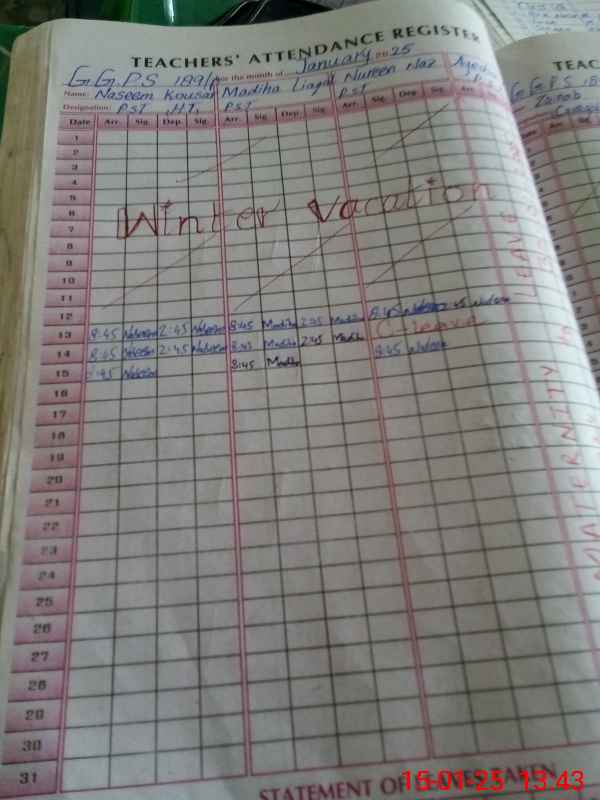 TEACHERS' ATTENDANCE REGISTER
GGPS 189/P for the month of January 2025
Name: Naseem Kousar Madiha Liaqat Nureen Naz
Designation: PST H.T. PST PST
Date Arr. Sig. Dep. Sig. Arr. Sig. Dep. Sig. Arr. Sig. Dep. Sig.
1
2
3
4
5
6
7
Winter Vacation
8
9
10
11
12
13 8:45 Naseem 2:45 Naseem 8:45 Madiha 2:45 Madiha 8:45
14 8:45 Naseem 2:45 Naseem 8:45 Madiha 2:45 Madiha C-leave
15 8:45 Naseem 8:45 Madiha 8:45
16
17
18
19
20
21
22
23
24
25
26
27
28
29
30
31
MATERNITY LEAVE
STATEMENT OF
TEAC
GGPS 18
Zainab
15-01-25 13:43